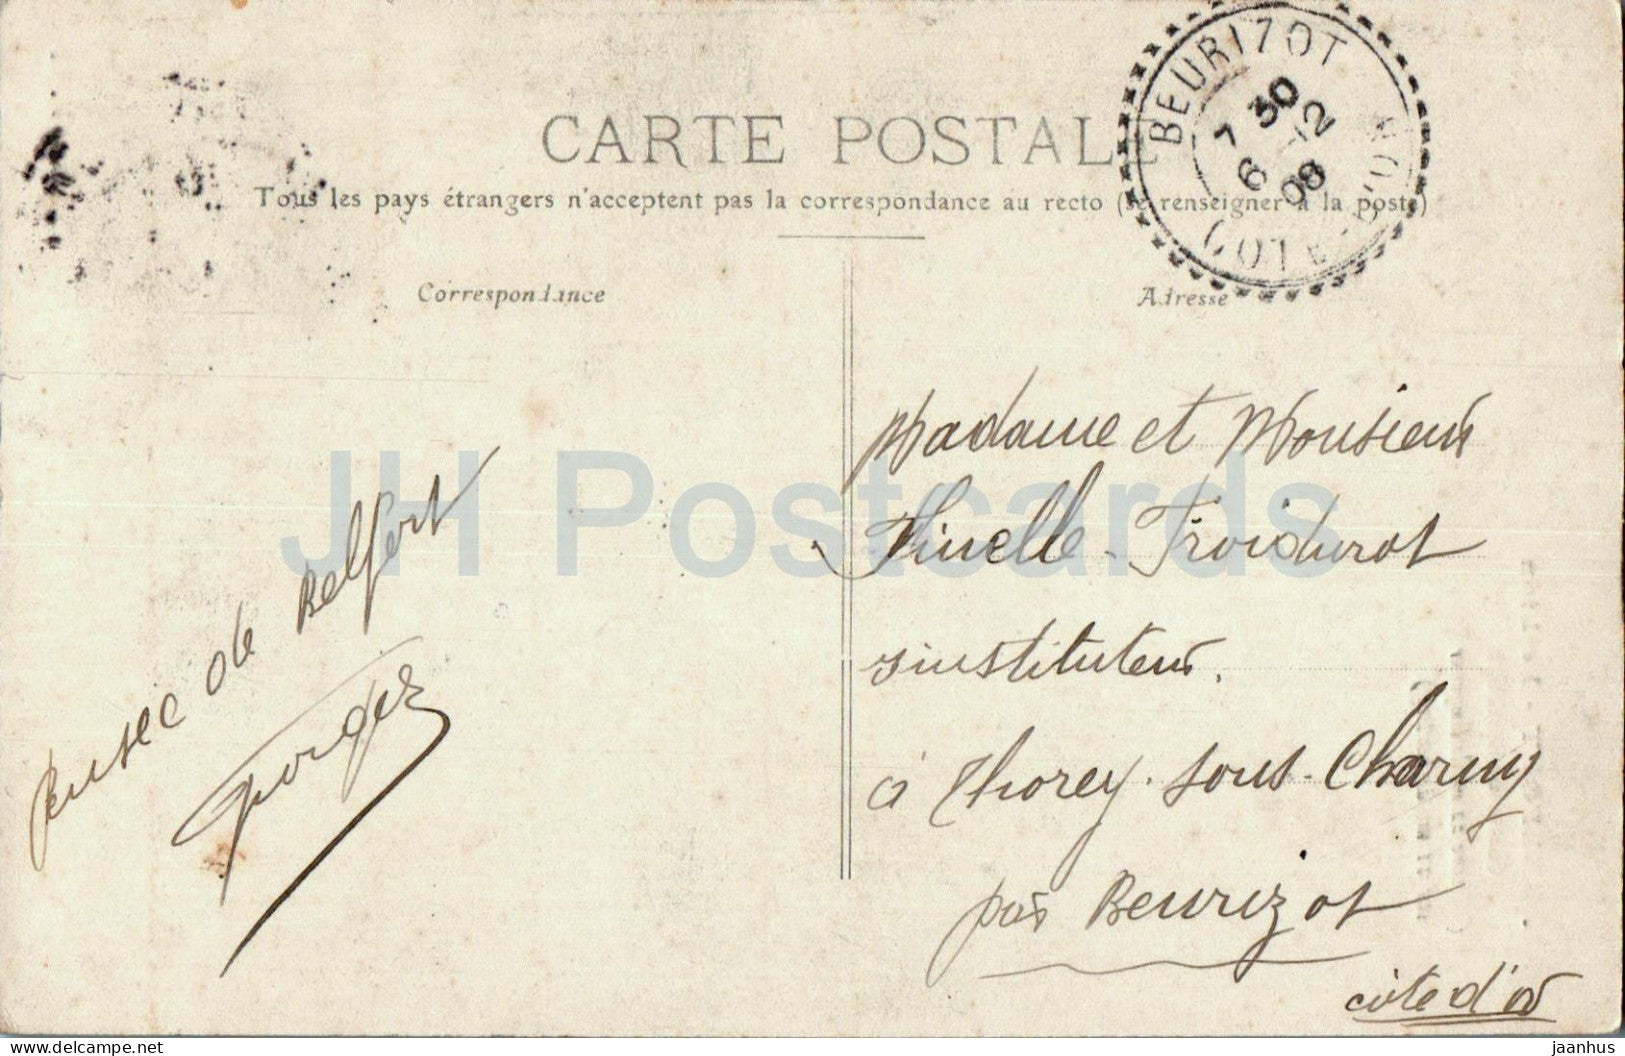 CARTE POSTALE
Tous les pays étrangers n'acceptent pas la correspondance au recto (se renseigner à la poste)
BEURIZOT
7 30
6 12
08
COTE-D'OR
Correspondance
Adresse
Madame et Monsieur
Troidurot
instituteur.
à Thorey-sous-Charny
par Beurizot
côte d'or
de Belfort
Georges
JH Postcards
delcampe.net
jaanhus